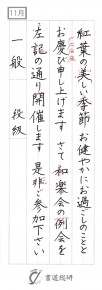 11月
紅葉の美しい季節 お健やかにお過しのことと
お慶び申し上げます さて 和楽会の例会を
左記の通り開催します 是非ご参加下さい
一般 段級
書道総研